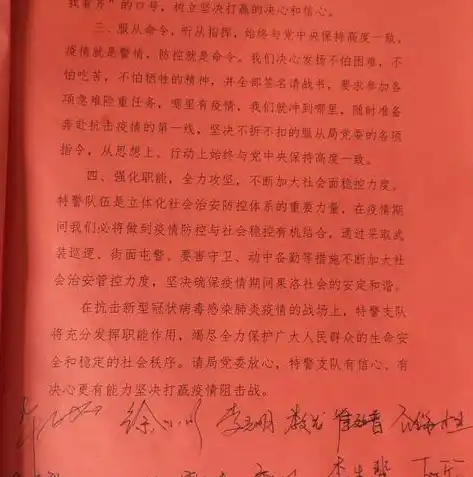 我看齐”的口号，树立坚决打赢的决心和信心。
三、服从命令，听从指挥，始终与党中央保持高度一致。
疫情就是警情，防控就是命令。我们决心发扬不怕困难，不
怕吃苦，不怕牺牲的精神，并全部签名请战书，要求参加各
项急难险重任务，哪里有疫情，我们就冲到哪里，随时准备
奔赴抗击疫情的第一线，坚决不折不扣的服从局党委的各项
指令，从思想上、行动上始终与党中央保持高度一致。
四、强化职能，全力攻坚，不断加大社会面稳控力度。
特警队伍是立体化社会治安防控体系的重要力量，在疫情期
间我们必将做到疫情防控与社会稳控有机结合，通过采取武
装巡逻、街面屯警、要害守卫、动中备勤等措施不断加大社
会治安管控力度，坚决确保疫情期间果洛社会的安定和谐。
在抗击新型冠状病毒感染肺炎疫情的战场上，特警支队
将充分发挥职能作用，竭尽全力保护广大人民群众的生命安
全和稳定的社会秩序。请局党委放心，特警支队有信心、有
决心更有能力坚决打赢疫情阻击战。